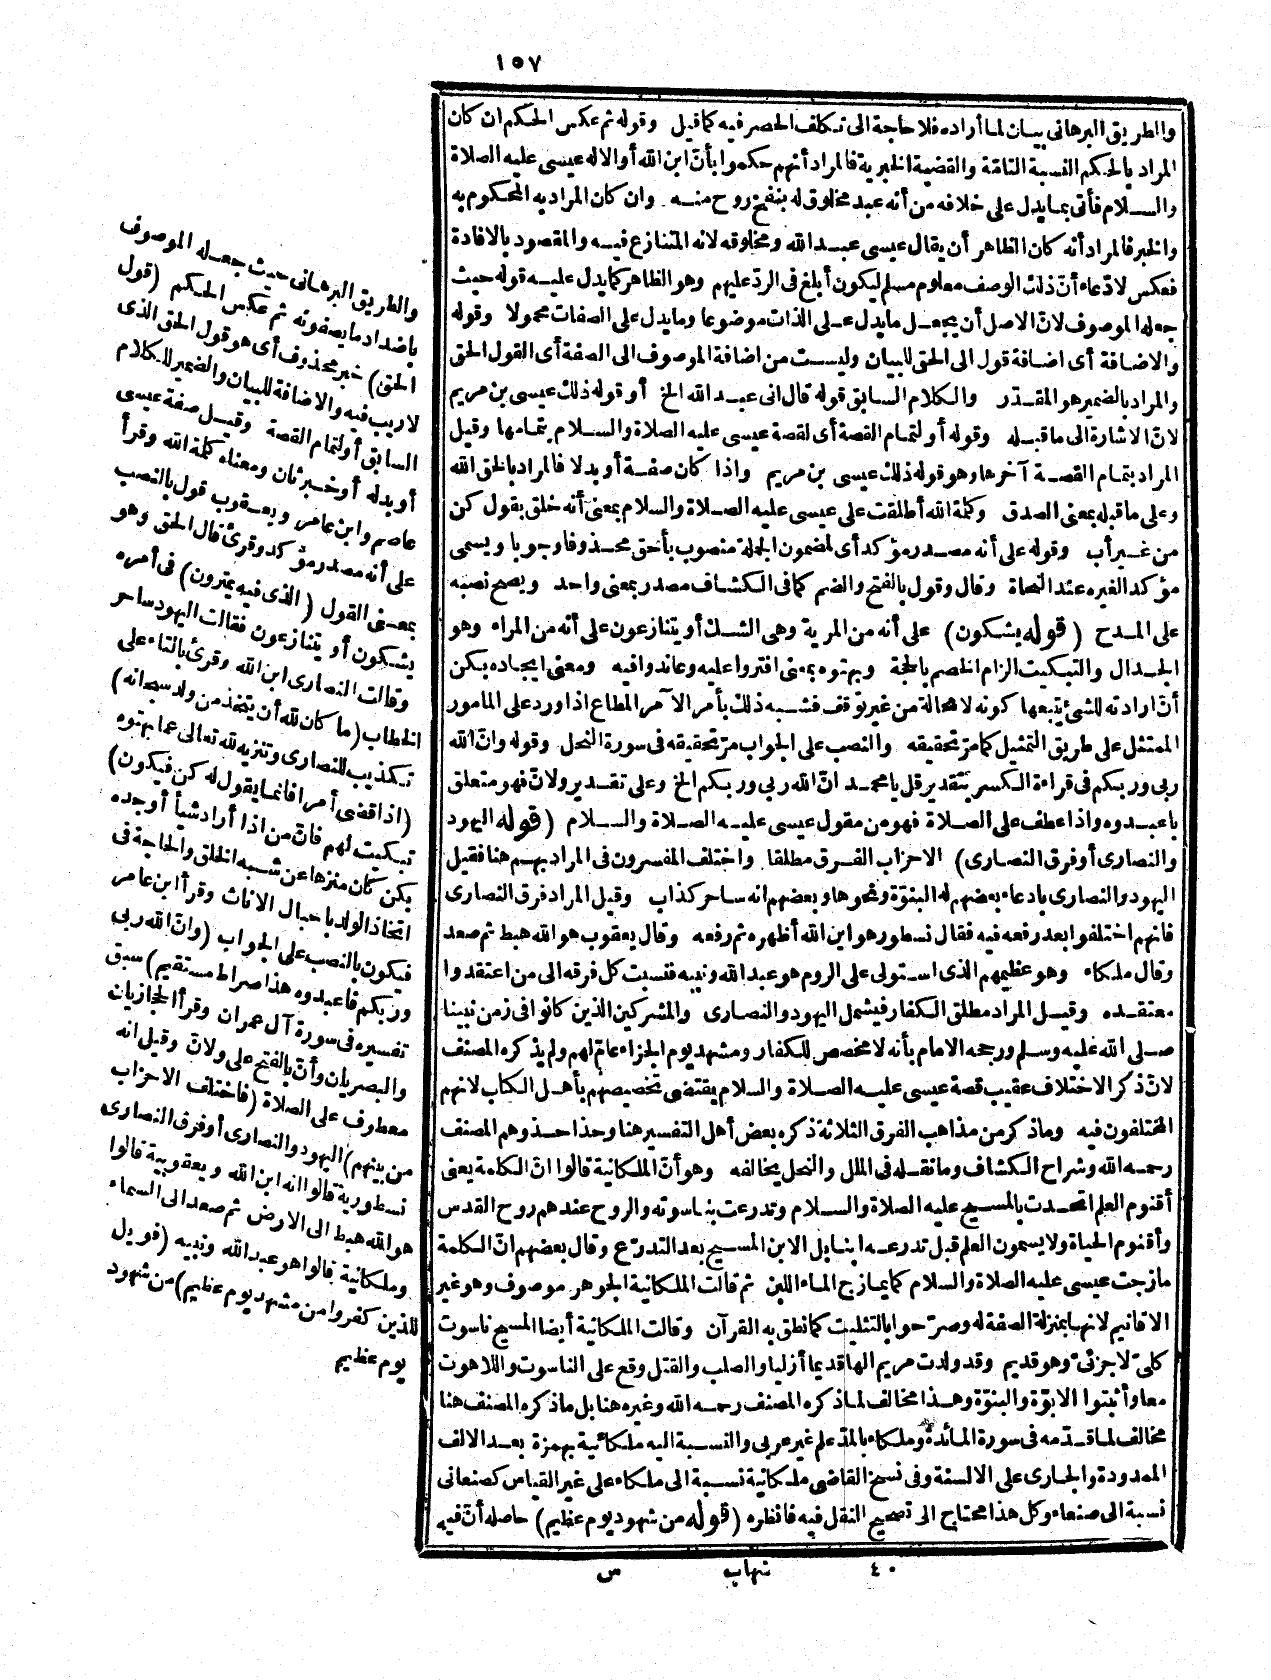 ١٥٧
والطريق البرهاني بيان لما أراده فلا حاجة الى تكلف الحصر فيه كما قيل وقوله ثم عكس الحكم ان كان
المراد بالحكم النسبة التامّة والقضية الخبرية فالمراد أنهم حكموا بأنّ ابن الله أو الاله عيسى عليه الصلاة
والسلام فأتى بما يدل على خلافه من أنه عبد مخلوق له بنفخ روح منه وان كان المراد به المحكوم به
والخبر فالمراد أنه كان الظاهر أن يقال عيسى عبد الله ومخلوقه لانه المتنازع فيه والمقصود بالافادة
فعكس لادّعاء أنّ ذلك الوصف معلوم مسلم ليكون أبلغ فى الردّ عليهم وهو الظاهر كما يدل عليه قوله حيث
جعله الموصوف لانّ الاصل أن يجعل ما يدل على الذات موضوعا وما يدل على الصفات محمولا وقوله
والاضافة أى اضافة قول الى الحق للبيان وليست من اضافة الموصوف الى الصفة أى القول الحق
والمراد بالضمير هو المقدّر والكلام السابق قوله قال انى عبد الله الخ أو قوله ذلك عيسى بن مريم
لانّ الاشارة الى ما قبله وقوله أو لتمام القصة أى لقصة عيسى عليه الصلاة والسلام بتمامها وقيل
المراد بتمام القصة آخرها وهو قوله ذلك عيسى بن مريم واذا كان صفة أو بدلا فالمراد بالحق الله
وعلى ما قبله بمعنى الصدق وكلمة الله أطلقت على عيسى عليه الصلاة والسلام بمعنى أنه خلق بقول كن
من غير أب وقوله على أنه مصدر مؤكد أى لمضمون الجملة منصوب بأحق محذوفا وجوبا ويسمى
مؤكد الغيره عند النحاة وقال وقول بالفتح والضم كما فى الكشاف مصدر بمعنى واحد ويصح نصبه
على المدح (قوله يشكون) على أنه من المرية وهى الشك أو يتنازعون على أنه من المراء وهو
الجدال والتبكيت الزام الخصم بالحجة وبهتوه بمعنى افتروا عليه وعاندوا فيه ومعنى ايجاده بكن
أنّ ارادته للشئ يتبعها كونه لا محالة من غير توقف فشبه ذلك بأمر الآمر المطاع اذا ورد على المامور
الممتثل على طريق التمثيل كما مرّ تحقيقه والنصب على الجواب مرّ تحقيقه فى سورة النحل وقوله وانّ الله
ربى وربكم فى قراءة الكسر بتقدير قل يا محمد انّ الله ربى وربكم الخ وعلى تقدير ولانّ فهو متعلق
باعبدوه واذا عطف على الصلاة فهو من مقول عيسى عليه الصلاة والسلام (قوله اليهود
والنصارى أو فرق النصارى) الاحزاب الفرق مطلقا واختلف المفسرون فى المراد بهم هنا فقيل
اليهود والنصارى بادعاء بعضهم له البنوّة ونحوها وبعضهم انه ساحر كذاب وقيل المراد فرق النصارى
فانهم اختلفوا بعد رفعه فيه فقال نسطور هو ابن الله أظهره ثم رفعه وقال يعقوب هو الله هبط ثم صعد
وقال ملكاء وهو عظيمهم الذى استولى على الروم هو عبد الله ونبيه فنسبت كل فرقة الى من اعتقدوا
معتقده وقيل المراد مطلق الكفار فيشمل اليهود والنصارى والمشركين الذين كانوا فى زمن نبينا
صلى الله عليه وسلم ورجحه الامام بأنه لا مخصص للكفار ومشهد يوم الجزاء عامّ لهم ولم يذكره المصنف
لانّ ذكر الاختلاف عقيب قصة عيسى عليه الصلاة والسلام يقتضى تخصيصهم بأهل الكتاب لانهم
المختلفون فيه وما ذكر من مذاهب الفرق الثلاثة ذكره بعض أهل التفسير هنا وحذا حذوهم المصنف
رحمه الله وشراح الكشاف وما نقله فى الملل والنحل يخالفه وهو أنّ الملكانية قالوا انّ الكلمة يعنى
أقنوم العلم اتحدت بالمسيح عليه الصلاة والسلام وتدرعت بناسوته والروح عندهم روح القدس
وأقنوم الحياة ولا يسمون العلم قبل تدرعه ابنا بل الابن المسيح بعد التدرّع وقال بعضهم انّ الكلمة
مازجت عيسى عليه الصلاة والسلام كما يمازج الماء اللبن ثم قالت الملكانية الجوهر موصوف وهو غير
الاقانيم لانها بمنزلة الصفة له وصرّحوا بالتثليث كما نطق به القرآن وقالت الملكانية أيضا المسيح ناسوت
كلىّ لا جزئىّ وهو قديم وقد ولدت مريم الها قديما أزليا والصلب والقتل وقع على الناسوت واللاهوت
معا وأثبتوا الابوّة والبنوّة وهذا مخالف لما ذكره المصنف رحمه الله وغيره هنا بل ما ذكره المصنف هنا
مخالف لما قدّمه فى سورة المائدة وملكاء بالمدّ علم غير عربى والنسبة اليه ملكائية بهمزة بعد الالف
الممدودة والجارى على الالسنة وفى نسخ القاضى ملكانية نسبة الى ملكاء على غير القياس كصنعانى
نسبة الى صنعاء وكل هذا محتاج الى تصحيح النقل فيه فانظره (قوله من شهود يوم عظيم) حاصله أنّ فيه
والطريق البرهانى حيث جعله الموصوف
باضداد ما يصفونه ثم عكس الحكم (قول
الحق) خبر محذوف أى هو قول الحق الذى
لا ريب فيه والاضافة للبيان والضمير للكلام
السابق أو لتمام القصة وقيل صفة عيسى
أو بدله أو خبر ثان ومعناه كلمة الله وقرأ
عاصم وابن عامر ويعقوب قول بالنصب
على أنه مصدر مؤكد وقرئ قال الحق وهو
بمعنى القول (الذى فيه يمترون) فى أمره
يشكون أو يتنازعون فقالت اليهود ساحر
وقالت النصارى ابن الله وقرئ بالتاء على
الخطاب (ما كان لله أن يتخذ من ولد سبحانه)
تكذيب للنصارى وتنزيه لله تعالى عما بهتوه
(اذا قضى أمرا فانما يقول له كن فيكون)
تبكيت لهم فانّ من اذا أراد شيأ أوجده
بكن كان منزها عن شبه الخلق والحاجة فى
اتخاذ الولد باحبال الاناث وقرأ ابن عامر
فيكون بالنصب على الجواب (وانّ الله ربى
وربكم فاعبدوه هذا صراط مستقيم) سبق
تفسيره فى سورة آل عمران وقرأ الحجازيان
والبصريان وأنّ بالفتح على ولانّ وقيل انه
معطوف على الصلاة (فاختلف الاحزاب
من بينهم) اليهود والنصارى أو فرق النصارى
نسطورية قالوا انه ابن الله ويعقوبية قالوا
هو الله هبط الى الارض ثم صعد الى السماء
وملكانية قالوا هو عبد الله ونبيه (فويل
للذين كفروا من مشهد يوم عظيم) من شهود
يوم عظيم
٤٠ شهاب س